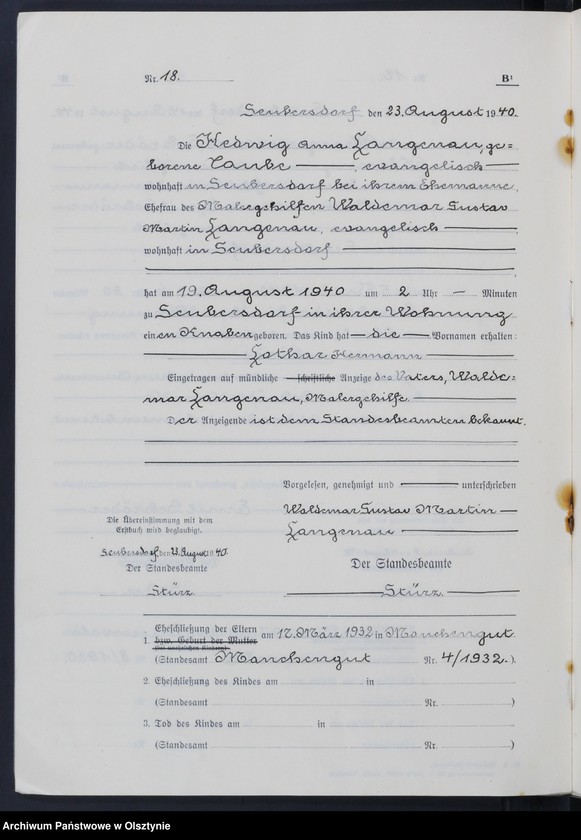 Nr. 18.
B¹
Seubersdorf den 23. August 1940.
Die Hedwig Anna Langenau, ge=
borene Taube ———, evangelisch ———
wohnhaft in Seubersdorf bei ihrem Ehemanne,
Ehefrau des Malergehilfen Waldemar Gustav
Martin Langenau, evangelisch ———,
wohnhaft in Seubersdorf ———
———,
hat am 19. August 1940 um 2 Uhr — Minuten
zu Seubersdorf in ihrer Wohnung
einen Knaben geboren. Das Kind hat — die — Vornamen erhalten:
——— Lothar Hermann ———
Eingetragen auf mündliche — schriftliche Anzeige des Vaters, Walde=
mar Langenau, Malergehilfe. ———
Der Anzeigende ist dem Standesbeamten bekannt.
Vorgelesen, genehmigt und ——— unterschrieben
Waldemar Gustav Martin —
Langenau ———
Die Übereinstimmung mit dem
Erstbuch wird beglaubigt.
Seubersdorf, den 23. August 1940.
Der Standesbeamte
Stürz.
Der Standesbeamte
——— Stürz. ———
Eheschließung der Eltern
1. bzw. Geburt der Mutter am 12. März 1932 in Manchengut.
(bei unehelichen Kindern)
(Standesamt Manchengut Nr. 4/1932.).
2. Eheschließung des Kindes am in
(Standesamt Nr. )
3. Tod des Kindes am in
(Standesamt Nr. )
Archiwum Państwowe w Olsztynie